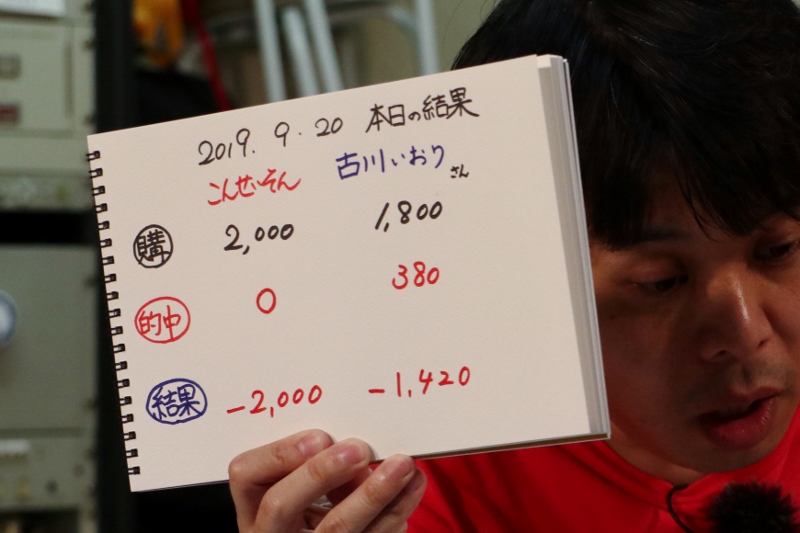 2019. 9. 20 本日の結果
こんせいそん 古川いおりさん
購 2,000 1,800
的中 0 380
結果 -2,000 -1,420